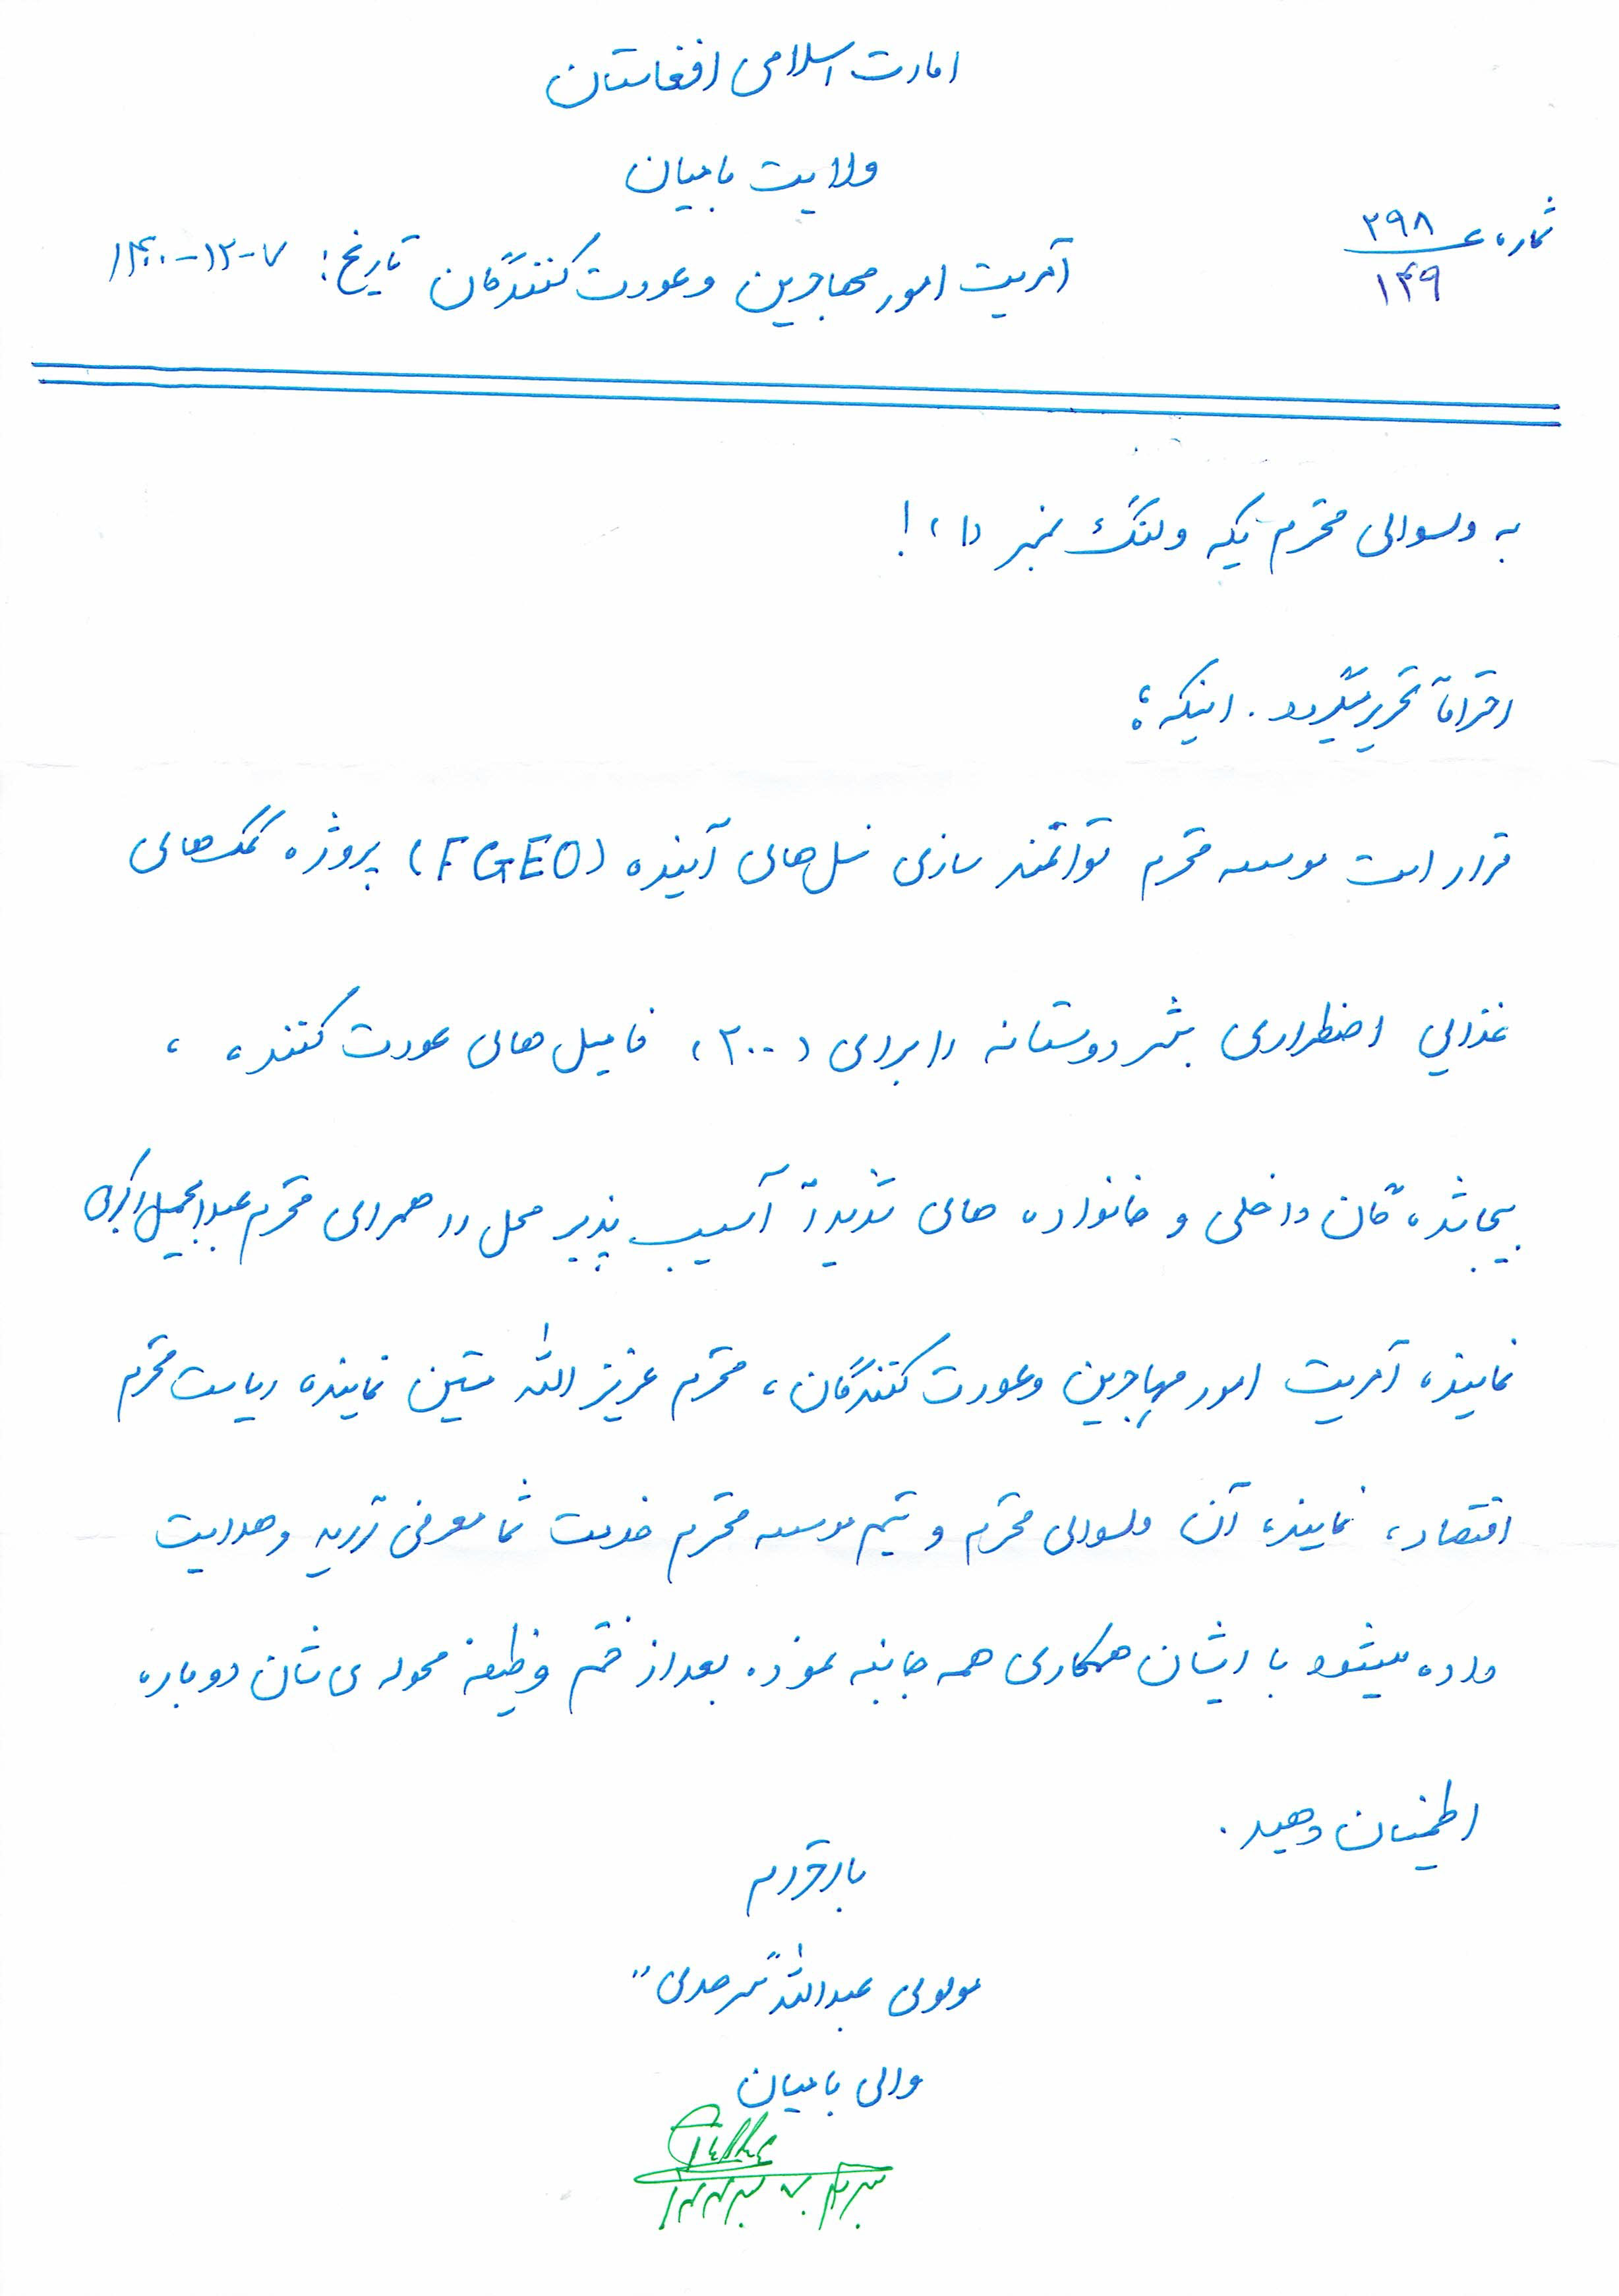 امارت اسلامی افغانستان
ولایت بامیان
شماره ۲۹۸
۱۴۹
آمریت امور مهاجرین و عودت کنندگان تاریخ: ۷-۱۲-۱۴۰۰
به ولسوالی محترم یکه ولنگ نمبر (۱)!
احتراماً تحریر میگردد. اینکه؛
قرار است موسسه محترم توانمند سازی نسل های آینده (FGEO) پروژه کمک های
غذایی اضطراری بشر دوستانه را برای (۲۰۰) فامیل های عودت کننده،
بیجاشده گان داخلی و خانواده های شدیداً آسیب پذیر محل را همرای محترم عبدالجمیل اکبری
نماینده آمریت امور مهاجرین و عودت کنندگان، محترم عزیز الله متین نماینده ریاست محترم
اقتصاد، نماینده آن ولسوالی محترم و تیم موسسه محترم خدمت شما معرفی گردیده و هدایت
داده میشود با ایشان همکاری همه جانبه نموده. بعد از ختم وظیفه محوله ی شان دوباره
اطمینان دهید.
با احترام
مولوی عبدالله "سرحدی"
والی بامیان